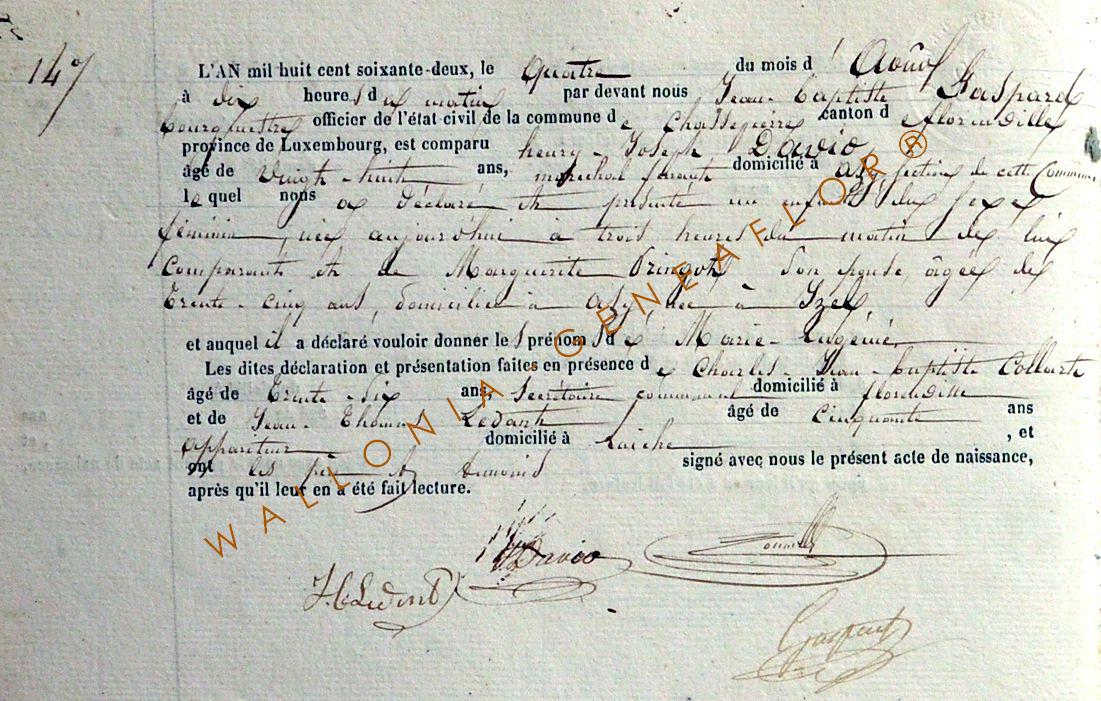 147
L'AN mil huit cent soixante-deux, le quatre du mois d'Août
à dix heures du matin par devant nous Jean-Baptiste Gaspard
bourgmestre officier de l'état civil de la commune de Chassepierre canton de florenville
province de Luxembourg, est comparu henry-Joseph Davio
âgé de Vingt-huit ans, maréchal ferrant domicilié à section de cette Commune
lequel nous a Déclaré et présenté un enfant du sexe
féminin, née aujourd'hui à trois heures du matin de lui
Comparant et de Marguerite Pringot Son épouse âgée de
Trente-cinq ans, domiciliée à née à Izel
et auquel il a déclaré vouloir donner les prénoms de Marie-Eugénie
Les dites déclaration et présentation faites en présence de Charles-Jean-baptiste
âgé de Trente-Six ans, Secrétaire communal domicilié à florenville
et de Jean-Thomas Ledant âgé de Cinquante ans
appariteur domicilié à Laiche , et
ont les père et témoins signé avec nous le présent acte de naissance,
après qu'il leur en a été fait lecture.
Davio
Ledent
Gaspard
WALLONIA GENEAFLOR ®